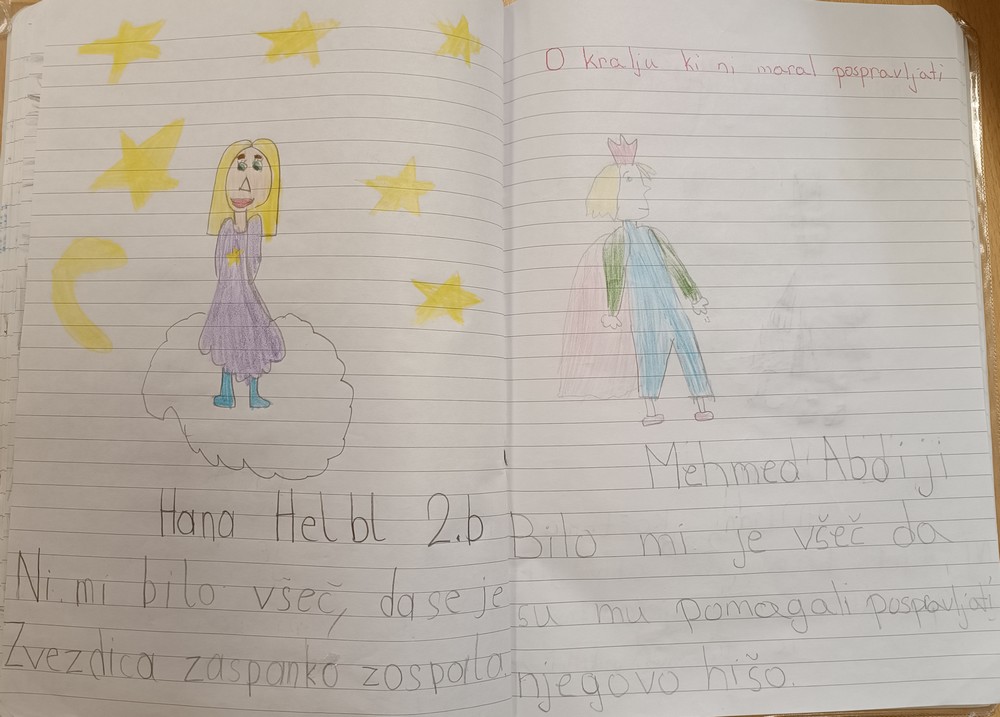 Hana Helbl 2.b
Ni mi bilo všeč, da se je
Zvezdica zaspanka zospala
O kralju ki ni maral pospravljati
Mehmed Abdiji
Bilo mi je všeč da
su mu pomagali pospravljati
njegovo hišo.